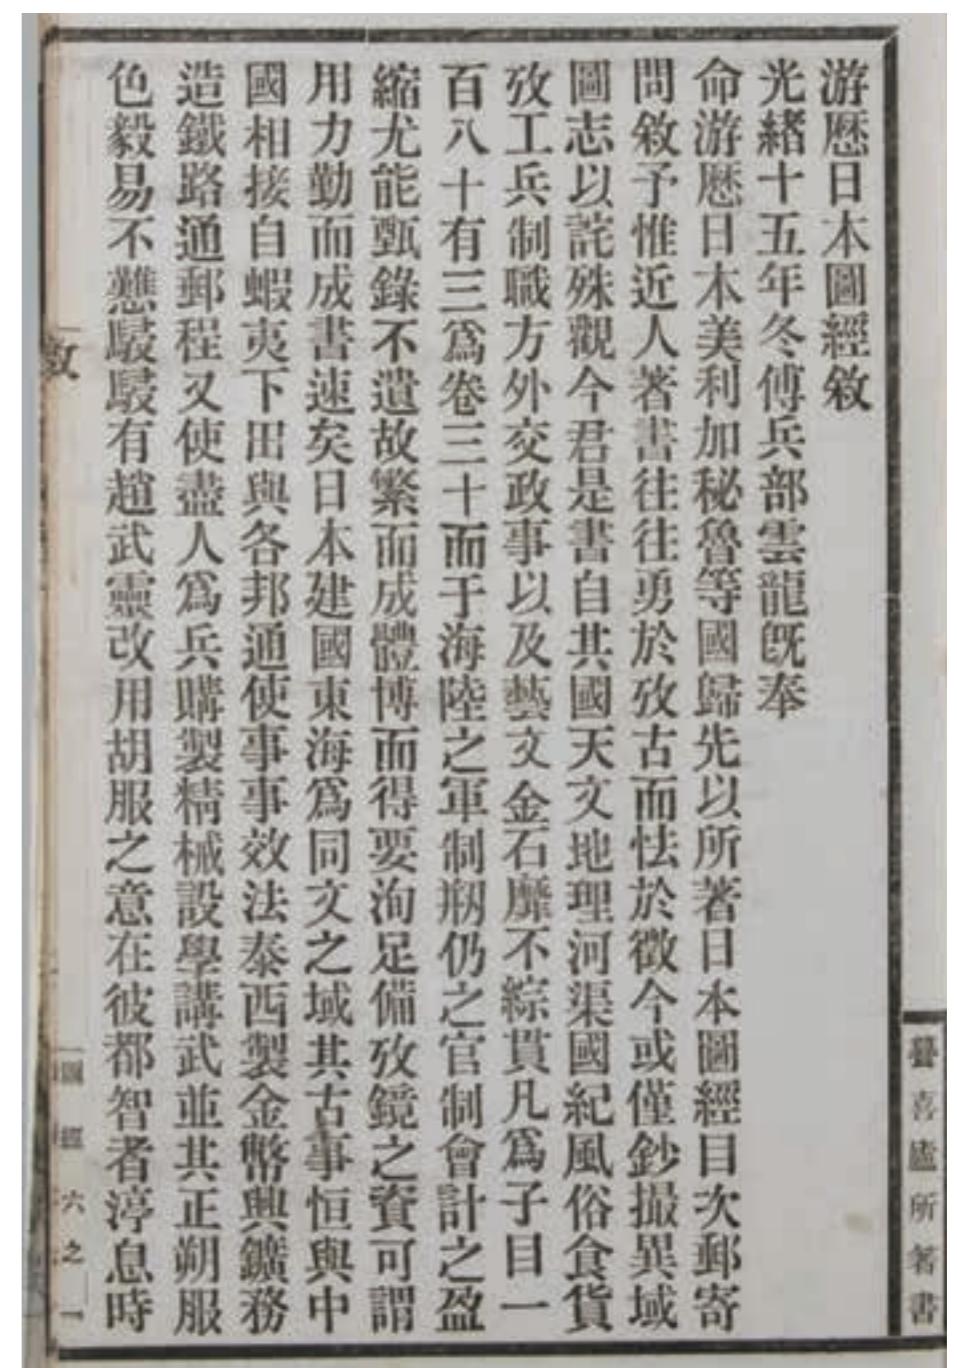 游歴日本圖經敘
光緒十五年冬傅兵部雲龍旣奉
命游歴日本美利加秘魯等國歸先以所著日本圖經目次郵寄
問敘予惟近人著書往往勇於攷古而怯於徵今或僅鈔撮異域
圖志以詫殊觀今君是書自其國天文地理河渠國紀風俗食貨
攷工兵制職方外交政事以及藝文金石靡不綜貫凡爲子目一
百八十有三爲卷三十而于海陸之軍制剏仍之官制會計之盈
縮尤能甄錄不遺故繁而成體博而得要洵足備攷鏡之資可謂
用力勤而成書速矣日本建國東海爲同文之域其古事恒與中
國相接自蝦夷下田與各邦通使事事效法泰西製金幣興鑛務
造鐵路通郵程又使盡人爲兵購製精械設學講武並其正朔服
色毅易不憗駸駸有趙武靈改用胡服之意在彼都智者渟息時
敘
圖經 六之一
喜廬所著書